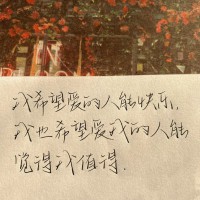 我希望爱的人能快乐，
我也希望爱我的人能
觉得我值得.